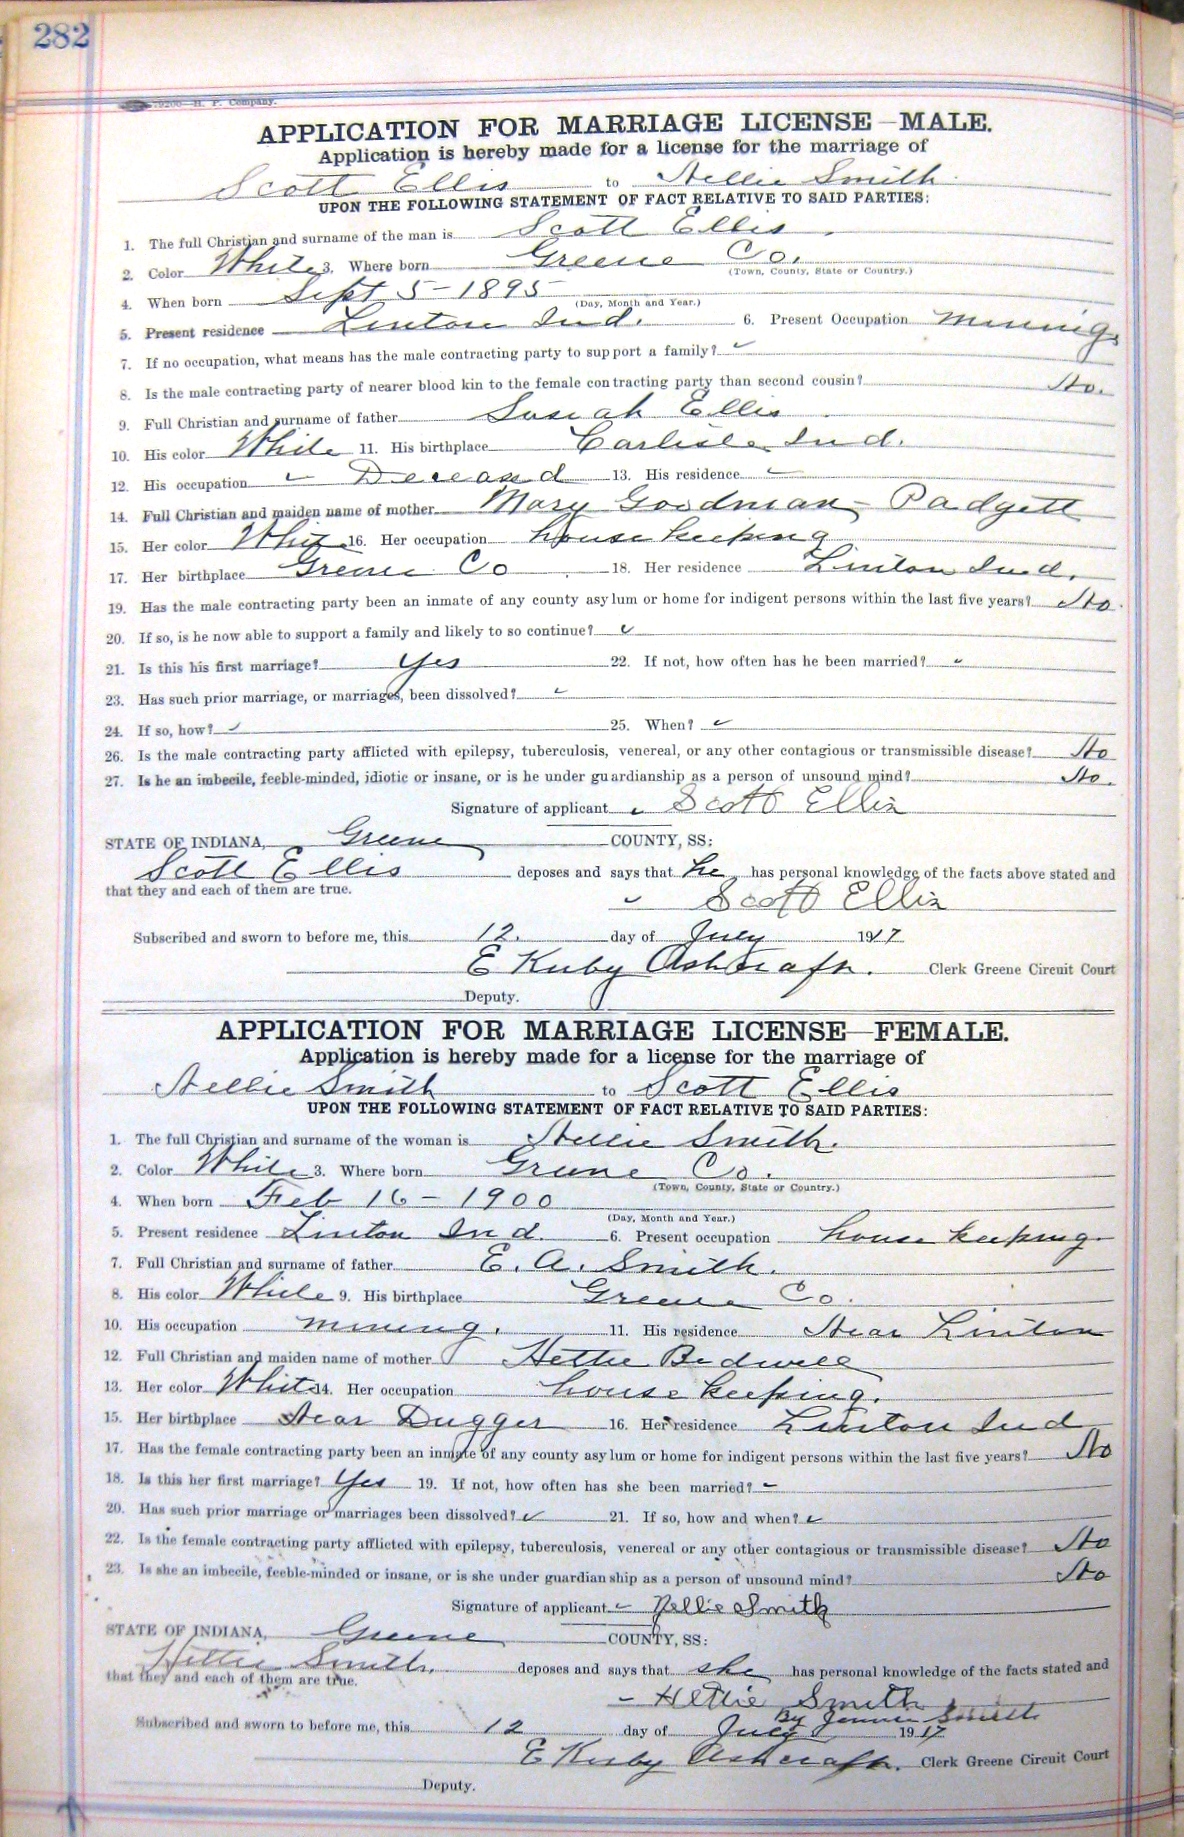 282
9200—H. P. Company.
APPLICATION FOR MARRIAGE LICENSE—MALE.
Application is hereby made for a license for the marriage of
Scott Ellis to Nellie Smith
UPON THE FOLLOWING STATEMENT OF FACT RELATIVE TO SAID PARTIES:
1. The full Christian and surname of the man is Scott Ellis.
2. Color White 3. Where born Greene Co.
(Town, County, State or Country.)
4. When born Sept 5-1895
(Day, Month and Year.)
5. Present residence Linton Ind. 6. Present Occupation mining
7. If no occupation, what means has the male contracting party to support a family? ✓
8. Is the male contracting party of nearer blood kin to the female contracting party than second cousin? No.
9. Full Christian and surname of father Ellis
10. His color White 11. His birthplace Carlisle Ind.
12. His occupation ✓ Deceasd 13. His residence ✓
14. Full Christian and maiden name of mother Mary Goodman - Padgett
15. Her color White 16. Her occupation house keeping
17. Her birthplace Greene Co 18. Her residence Linton Ind.
19. Has the male contracting party been an inmate of any county asylum or home for indigent persons within the last five years? No.
20. If so, is he now able to support a family and likely to so continue? ✓
21. Is this his first marriage? Yes 22. If not, how often has he been married? ✓
23. Has such prior marriage, or marriages, been dissolved? ✓
24. If so, how? ✓ 25. When? ✓
26. Is the male contracting party afflicted with epilepsy, tuberculosis, venereal, or any other contagious or transmissible disease? No
27. Is he an imbecile, feeble-minded, idiotic or insane, or is he under guardianship as a person of unsound mind? No.
Signature of applicant Scott Ellis
STATE OF INDIANA, Greene COUNTY, SS:
Scott Ellis deposes and says that he has personal knowledge of the facts above stated and
that they and each of them are true.
✓ Scott Ellis
Subscribed and sworn to before me, this 12. day of July 1917
E Kirby Ashcraft. Clerk Greene Circuit Court
Deputy.
APPLICATION FOR MARRIAGE LICENSE—FEMALE.
Application is hereby made for a license for the marriage of
Nellie Smith to Scott Ellis
UPON THE FOLLOWING STATEMENT OF FACT RELATIVE TO SAID PARTIES:
1. The full Christian and surname of the woman is Nellie Smith.
2. Color White 3. Where born Greene Co.
(Town, County, State or Country.)
4. When born Feb 16-1900
(Day, Month and Year.)
5. Present residence Linton Ind. 6. Present occupation house keeping
7. Full Christian and surname of father E. A. Smith.
8. His color White 9. His birthplace Greene Co.
10. His occupation mining. 11. His residence Near Linton
12. Full Christian and maiden name of mother Hettie Bedwell
13. Her color White 14. Her occupation house keeping.
15. Her birthplace Near Dugger 16. Her residence Linton Ind
17. Has the female contracting party been an inmate of any county asylum or home for indigent persons within the last five years? No
18. Is this her first marriage? Yes 19. If not, how often has she been married? ✓
20. Has such prior marriage or marriages been dissolved? ✓ 21. If so, how and when? ✓
22. Is the female contracting party afflicted with epilepsy, tuberculosis, venereal or any other contagious or transmissible disease? No
23. Is she an imbecile, feeble-minded or insane, or is she under guardianship as a person of unsound mind? No
Signature of applicant ✓ Nellie Smith
STATE OF INDIANA, Greene COUNTY, SS:
Hettie Smith. deposes and says that she has personal knowledge of the facts stated and
that they and each of them are true.
- Hettie Smith
By Jennie Smith
Subscribed and sworn to before me, this 12 day of July 1917
E Kirby Ashcraft. Clerk Greene Circuit Court
Deputy.